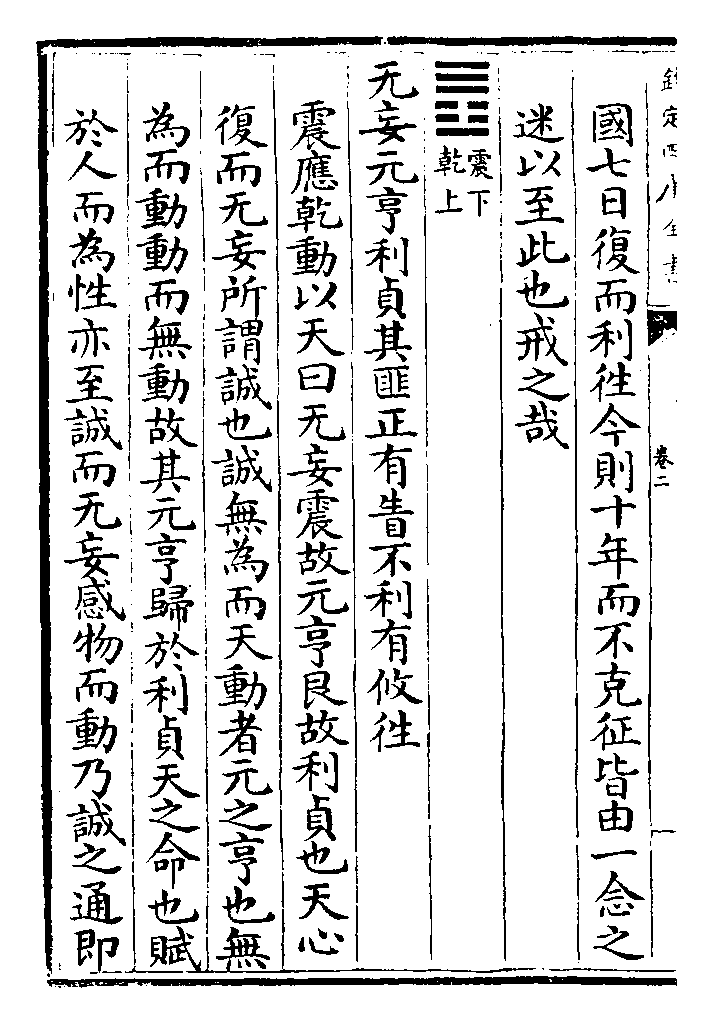 欽定四庫全書
卷二
國七日復而利往今則十年而不克征皆由一念之
迷以至此也戒之哉
䷘震下乾上
无妄元亨利貞其匪正有眚不利有攸往
震應乾動以天曰无妄震故元亨艮故利貞也天心
復而无妄所謂誠也誠無為而天動者元之亨也無
為而動動而無動故其元亨歸於利貞天之命也賦
於人而為性亦至誠而无妄感物而動乃誠之通即